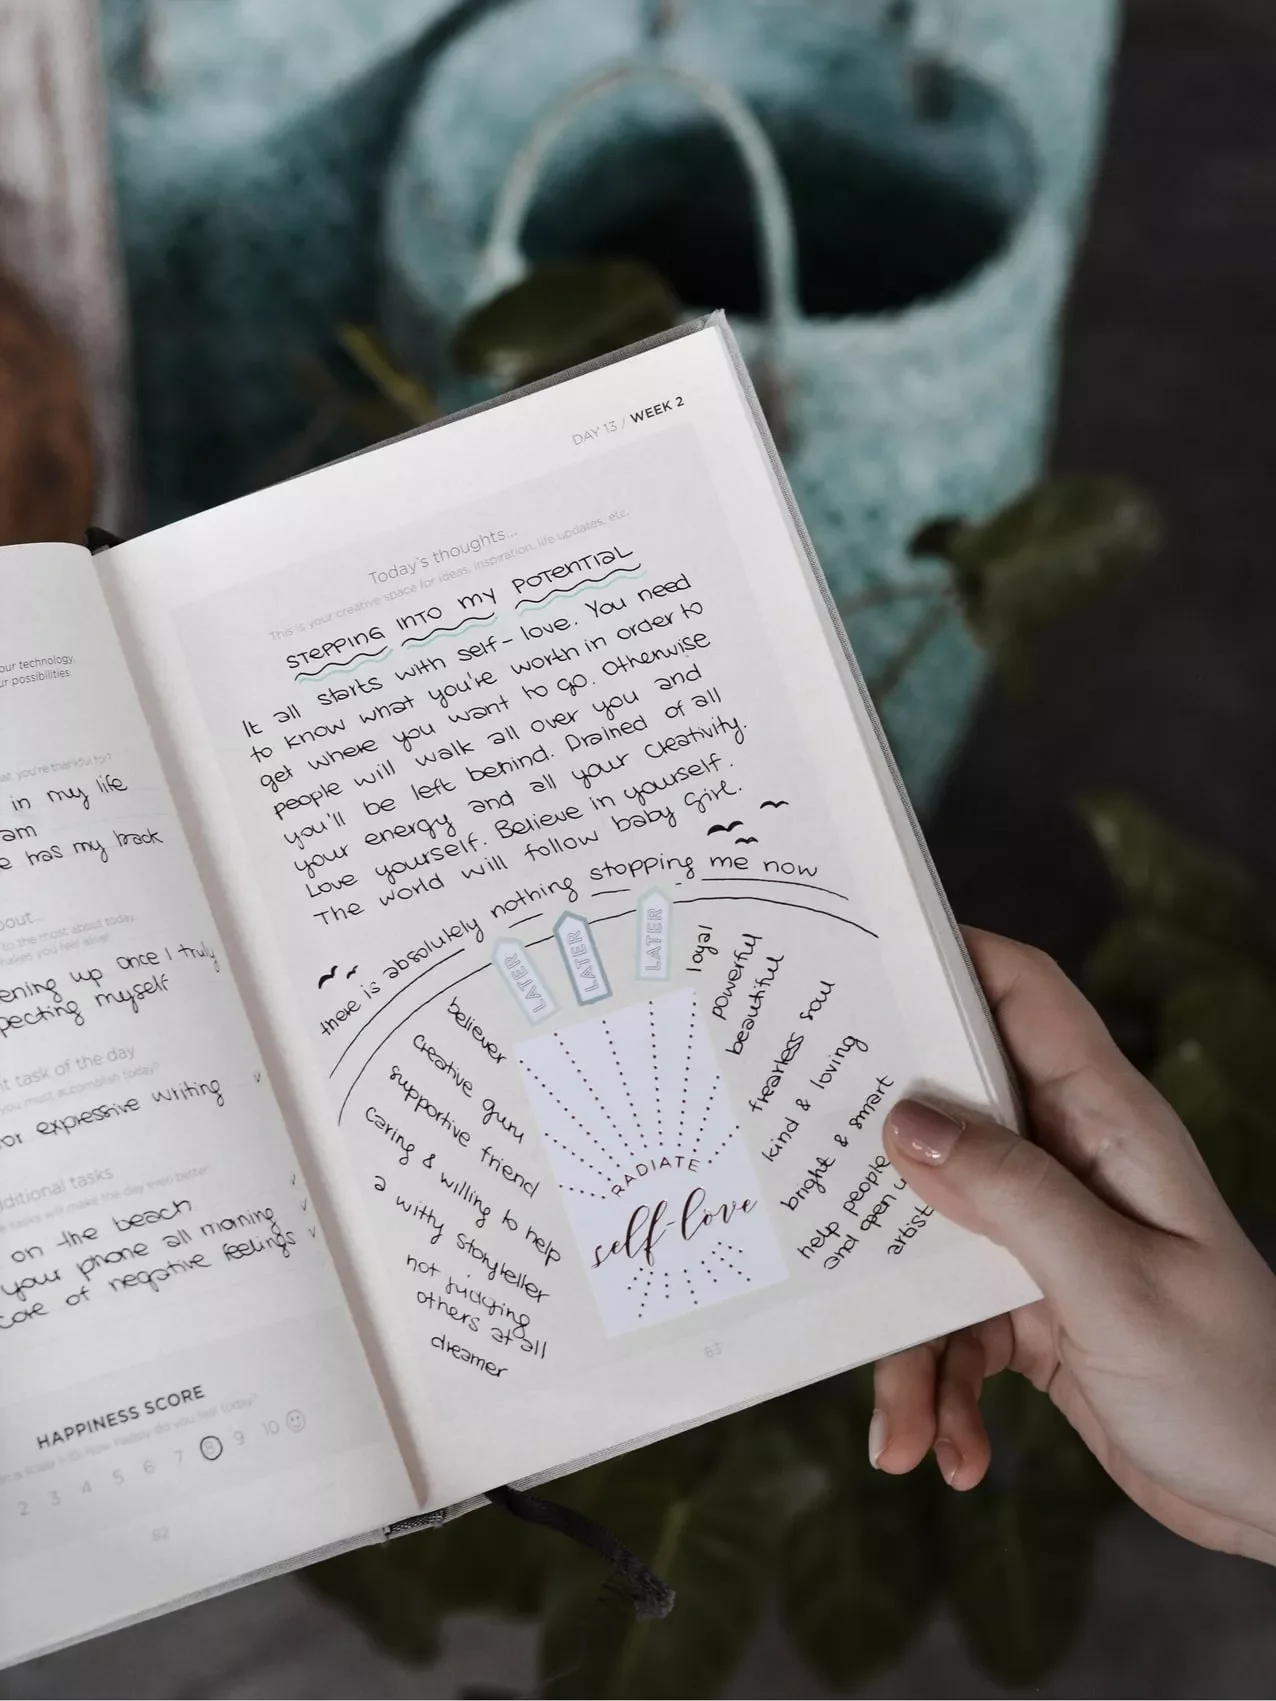 our technology,
ur possibilities.
you're thankful for?
in my life
am
has my back
bout...
to the most about today
makes you feel alive?
ening up once I truly
pecting myself
it task of the day
you must accomplish today?
or expressive writing
ditional tasks
tasks will make the day even better
on the beach
your phone all morning
care of negative feelings
HAPPINESS SCORE
how happy do you feel today?
2 3 4 5 6 7 8 9 10
62
DAY 13 / WEEK 2
Today's thoughts...
This is your creative space for ideas, inspiration, life updates, etc.
STEPPING INTO MY POTENTIAL
It all starts with self-love. You need
to know what you're worth in order to
get where you want to go. Otherwise
people will walk all over you and
you'll be left behind. Drained of all
your energy and all your creativity.
Love yourself. Believe in yourself.
The world will follow baby girl.
there is absolutely nothing stopping me now
LATER
LATER
LATER
believer
creative guru
supportive friend
caring & willing to help
a witty storyteller
not judging
others at all
dreamer
RADIATE
self-love
loyal
powerful
beautiful
fearless soul
kind & loving
bright & smart
help people
and open u
artist
63